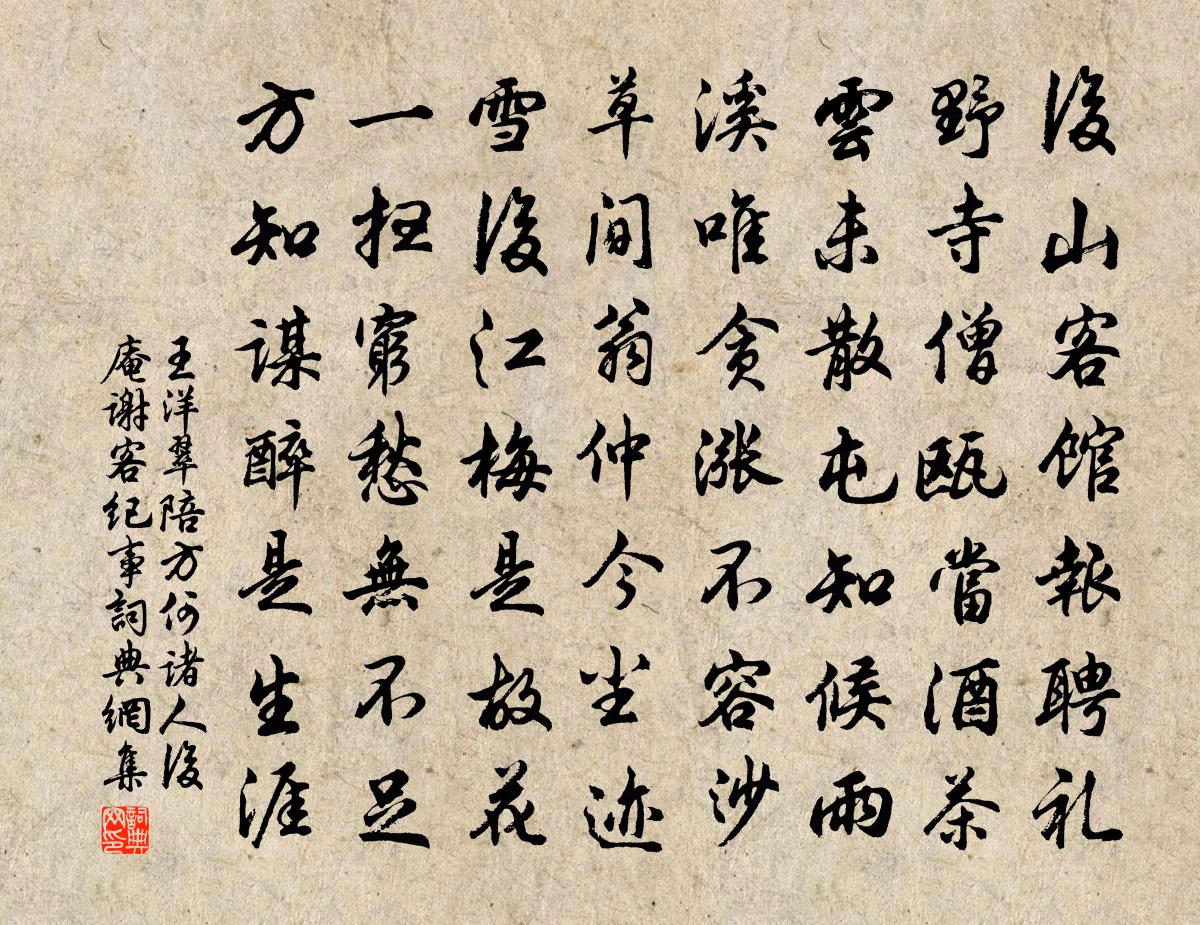 後山客館報聘礼
野寺僧甌當酒茶
雲未散屯知候雨
溪唯貪漲不容沙
草間翁仲今尘迹
雪後江梅是故花
一抂窮愁無不足
方知謀醉是生涯
王洋翠陪方何諸人後
庵謝客紀事詞典網集
詞典
网印